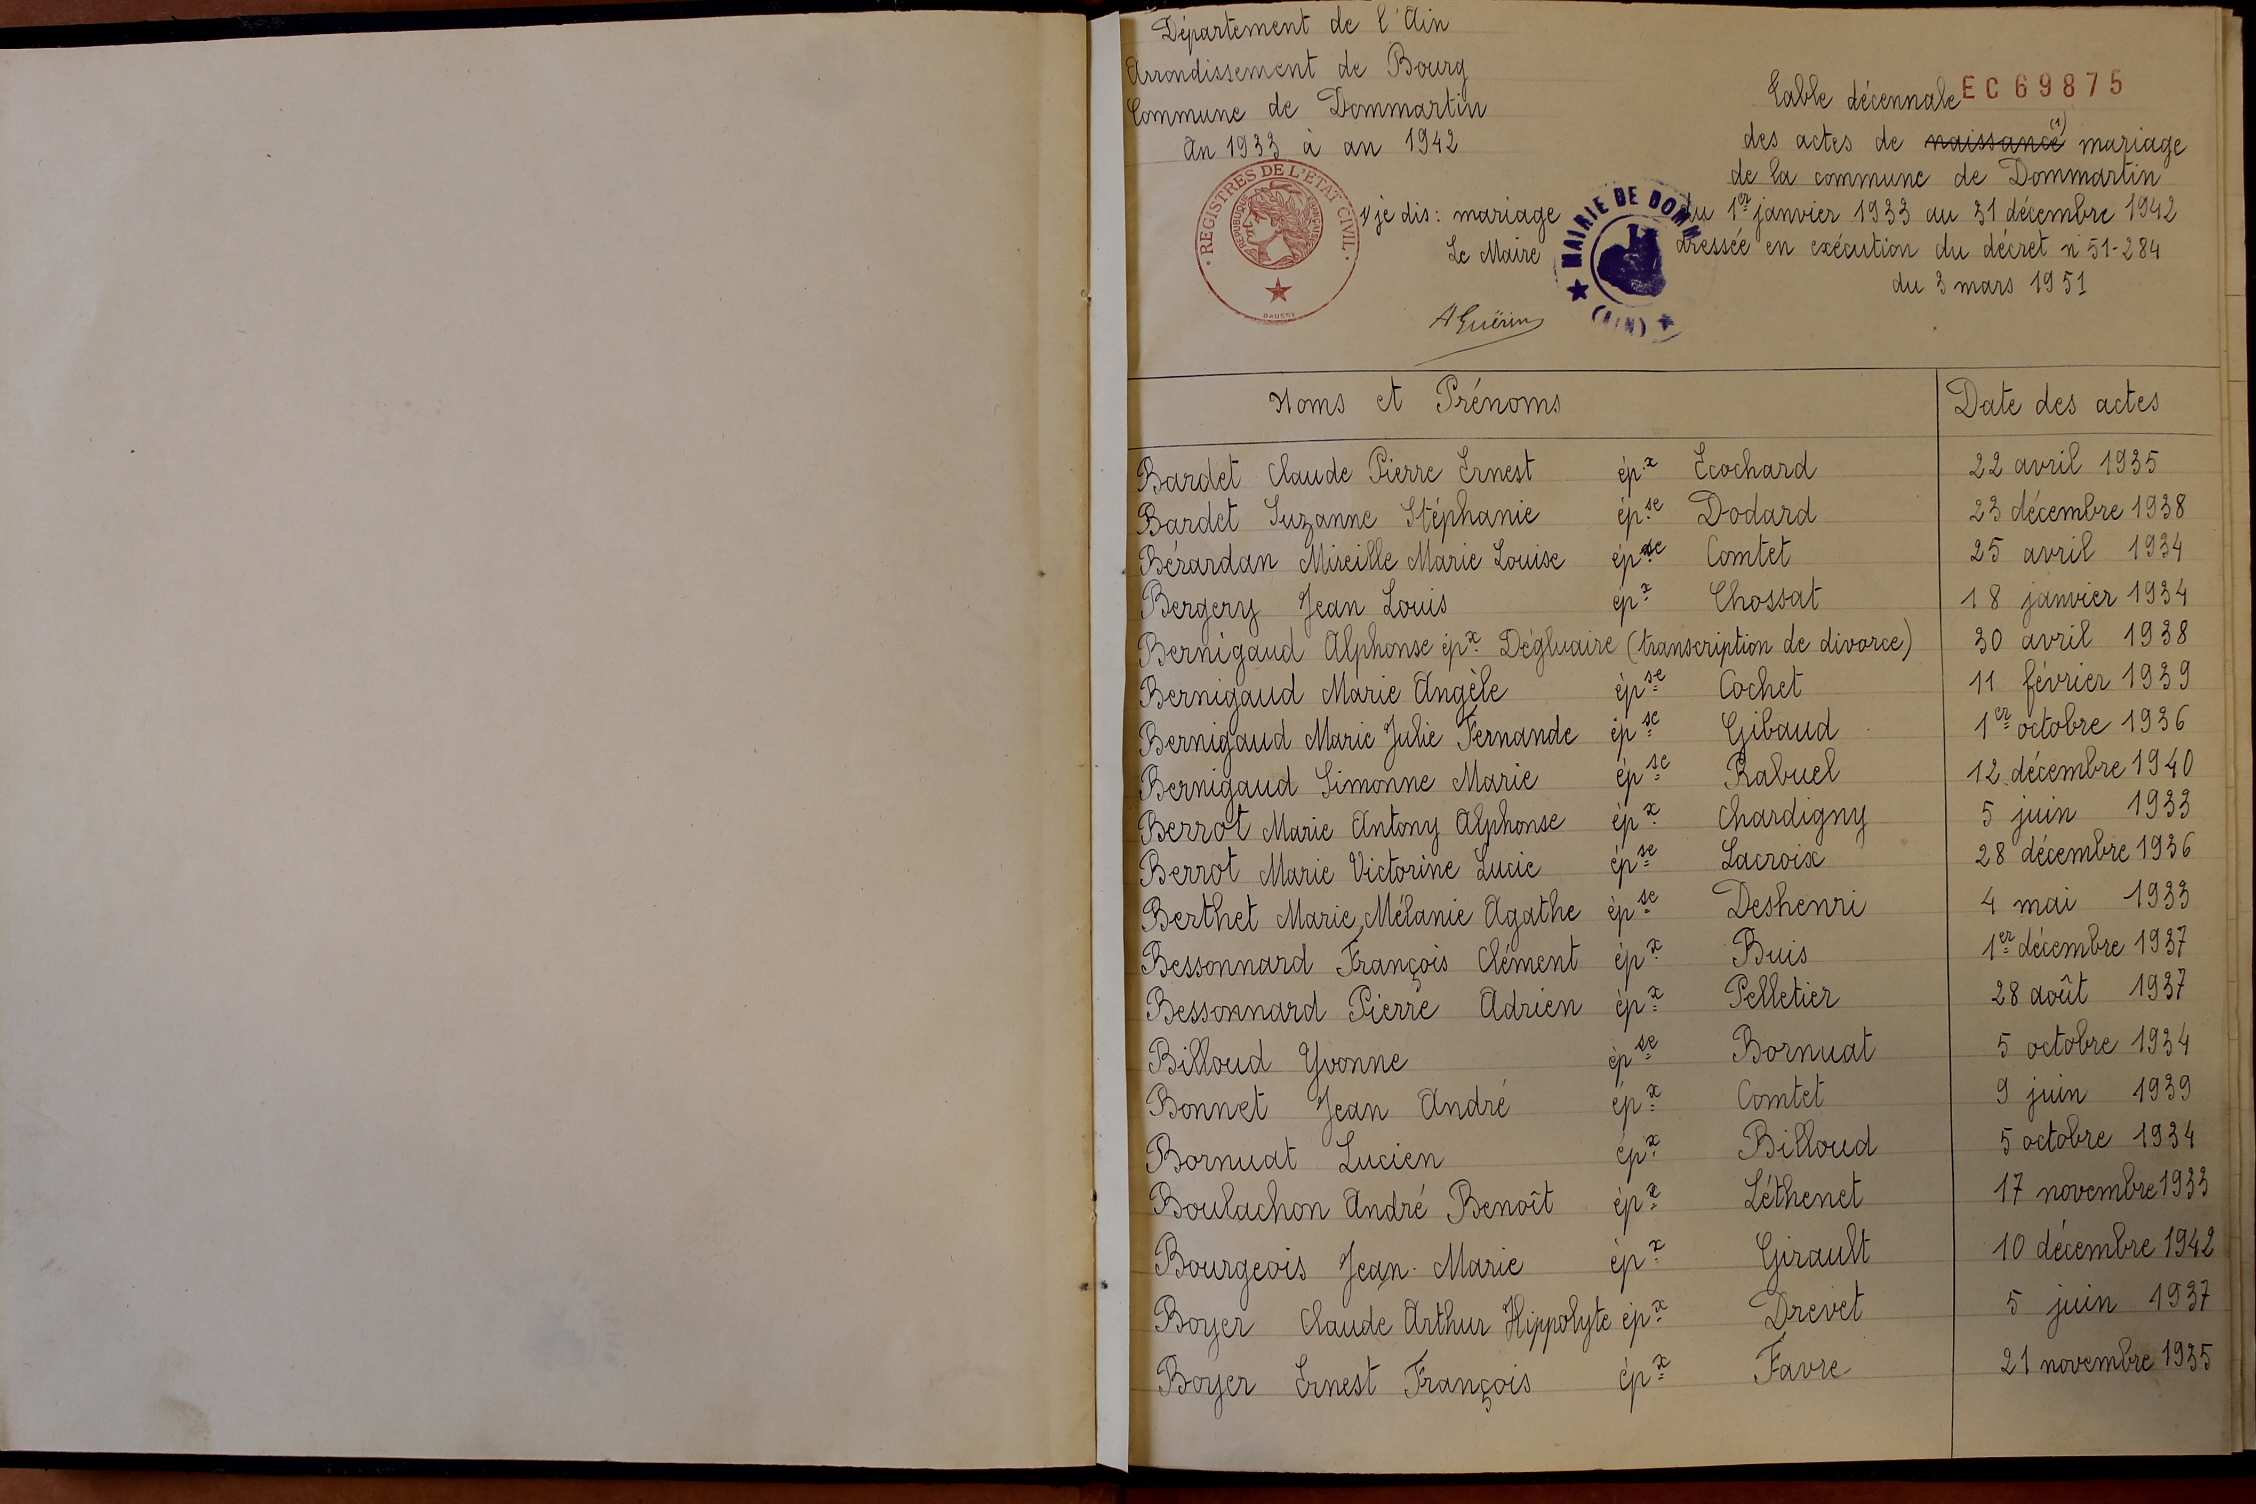 Département de l'Ain
Arrondissement de Bourg
Commune de Dommartin
An 1933 à an 1942
EC 69875
Table décennale
des actes de naissance (1) mariage
de la commune de Dommartin
du 1er janvier 1933 au 31 décembre 1942
dressée en exécution du décret n° 51-284
du 3 mars 1951
REGISTRES DE L'ETAT CIVIL
REPUBLIQUE FRANÇAISE
1/ je dis : mariage
Le Maire
AGuérin
MAIRIE DE DOMM
(AIN)
Noms et Prénoms Date des actes
Bardet Claude Pierre Ernest ép.x Ecochard 22 avril 1935
Bardet Suzanne Stéphanie ép.se Dodard 23 décembre 1938
Bérardan Mireille Marie Louise épse Comtet 25 avril 1934
Bergery Jean Louis épx Chossat 18 janvier 1934
Bernigaud Alphonse épx Dégluaire (transcription de divorce) 30 avril 1938
Bernigaud Marie Angèle épse Cochet 11 février 1939
Bernigaud Marie Julie Fernande épse Gibaud 1er octobre 1936
Bernigaud Simonne Marie épse Rabuel 12 décembre 1940
Berrot Marie Antony Alphonse épx Chardigny 5 juin 1933
Berrot Marie Victorine Lucie épse Lacroix 28 décembre 1936
Berthet Marie Mélanie Agathe épse Deshenri 4 mai 1933
Bessonnard François Clément épx Buis 1er décembre 1937
Bessonnard Pierre Adrien épx Pelletier 28 août 1937
Billoud Yvonne épse Bornuat 5 octobre 1934
Bonnet Jean André épx Comtet 9 juin 1939
Bornuat Lucien épx Billoud 5 octobre 1934
Boulachon André Benoît épx Léthenet 17 novembre 1933
Bourgeois Jean-Marie épx Girault 10 décembre 1942
Boyer Claude Arthur Hippolyte épx Drevet 5 juin 1937
Boyer Ernest François épx Favre 21 novembre 1935